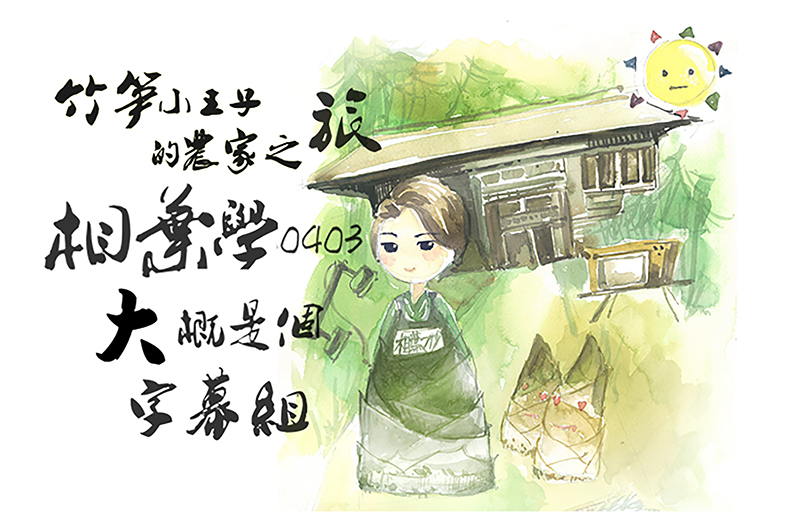 竹笋小王子
的農家之旅
相葉學0403
大概是個
字幕組